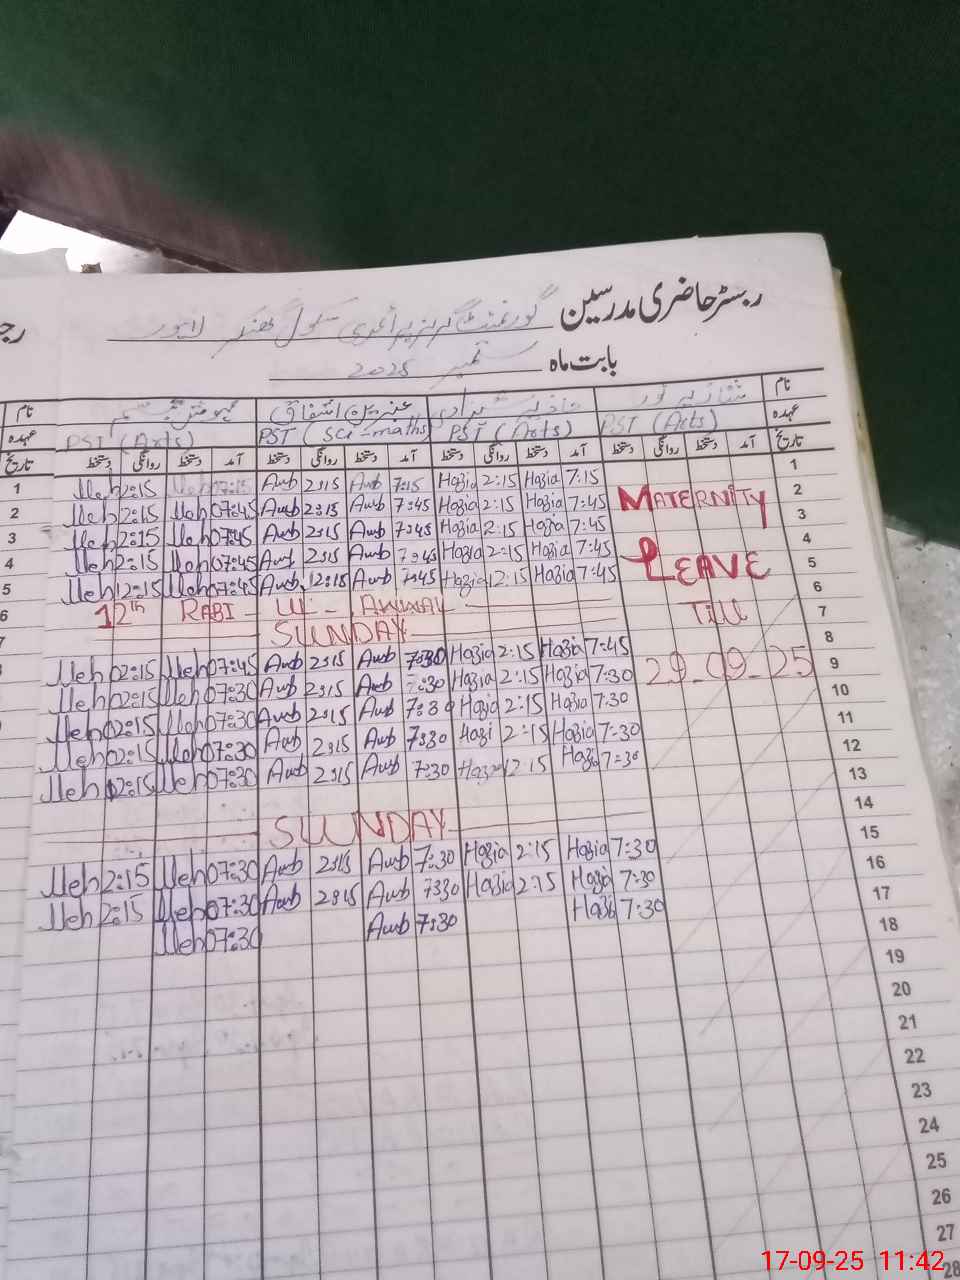 رجسٹر حاضری مدرسین گورنمنٹ گرلز پرائمری سکول لاہور
بابت ماہ ستمبر 2025
نام شازیہ نور شہزادی عنبرین اشفاق
عہدہ PST (Arts) PST (Arts) PST (Sci-maths) PST (Arts)
تاریخ آمد دستخط روانگی دستخط آمد دستخط روانگی دستخط آمد دستخط روانگی دستخط آمد دستخط روانگی دستخط تاریخ
1 Meh 2:15 Meh 07:15 Amb 2:15 Amb 7:15 Hazia 2:15 Hazia 7:15 1
2 Meh 2:15 Meh 07:45 Amb 2:15 Amb 7:45 Hazia 2:15 Hazia 7:45 MATERNITY 2
3 Meh 2:15 Meh 07:45 Amb 2:15 Amb 7:45 Hazia 2:15 Hazia 7:45 3
4 Meh 2:15 Meh 07:45 Amb 2:15 Amb 7:45 Hazia 2:15 Hazia 7:45 LEAVE 4
5 Meh 12:15 Meh 07:45 Amb 12:15 Amb 7:45 Hazia 12:15 Hazia 7:45 5
6 12th RABI - UL - AWWAL TILL 6
7 SUNDAY 7
Meh 02:15 Meh 07:45 Amb 2:15 Amb 7:30 Hazia 2:15 Hazia 7:45 29-09-25 8
Meh 02:15 Meh 07:30 Amb 2:15 Amb 7:30 Hazia 2:15 Hazia 7:30 9
Meh 02:15 Meh 07:30 Amb 2:15 Amb 7:30 Hazia 2:15 Hazia 7:30 10
Meh 02:15 Meh 07:30 Amb 2:15 Amb 7:30 Hazi 2:15 Hazia 7:30 11
Meh 02:15 Meh 07:30 Amb 2:15 Amb 7:30 Hazia 12:15 Hazia 7:30 12
13
SUNDAY 14
Meh 2:15 Meh 07:30 Amb 2:15 Amb 7:30 Hazia 2:15 Hazia 7:30 15
Meh 2:15 Meh 07:30 Amb 2:15 Amb 7:30 Hazia 2:15 Hazia 7:30 16
Meh 07:30 Amb 7:30 Hazia 7:30 17
18
19
20
21
22
23
24
25
26
27
28
17-09-25 11:42